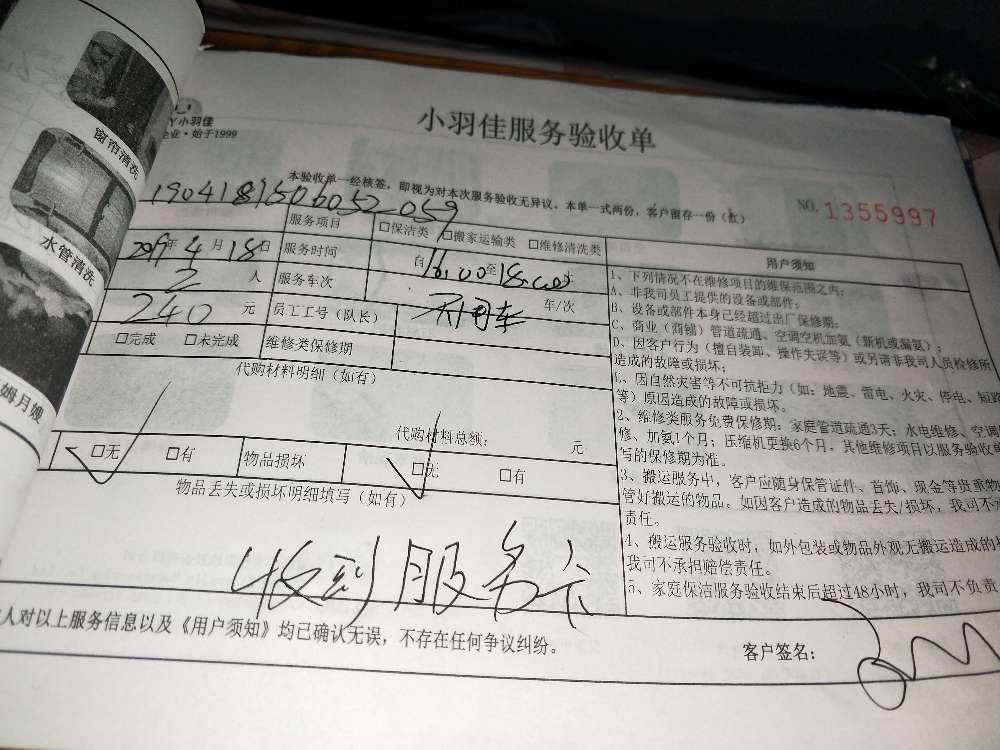 小羽佳
企业·始于1999
窗帘清洗
水管清洗
姆月嫂
小羽佳服务验收单
本验收单一经核签，即视为对本次服务验收无异议。本单一式两份，客户留存一份（红）
NO. 1355997
1904181506052 059
服务项目 □保洁类 □搬家运输类 □维修清洗类
2019年 4月 18日 服务时间 自 16:00 至 18:00
2 人 服务车次 不用车 车/次
240 元 员工工号（队长）
□完成 □未完成 维修类保修期
代购材料明细（如有）
代购材料总额： 元
□无 □有 物品损坏 □无 □有
物品丢失或损坏明细填写（如有）
收到服务卡
用户须知
1、下列情况不在维修项目的维保范围之内：
A、非我司员工提供的设备或部件；
B、设备或部件本身已经超过出厂保修期；
C、商业（商铺）管道疏通、空调空机加氨（新机或漏氨）；
D、因客户行为（擅自装卸、操作失误等）或另请非我司人员检修所
造成的故障或损坏；
E、因自然灾害等不可抗拒力（如：地震、雷电、火灾、停电、短路
等）原因造成的故障或损坏。
2、维修类服务免费保修期：家庭管道疏通3天；水电维修、空调
修、加氨1个月；压缩机更换6个月，其他维修项目以服务验收单
写的保修期为准。
3、搬运服务中，客户应随身保管证件、首饰、现金等贵重物
管好搬运的物品。如因客户造成的物品丢失/损坏，我司不
责任。
4、搬运服务验收时，如外包装或物品外观无搬运造成的
我司不承担赔偿责任。
5、家庭保洁服务验收结束后超过48小时，我司不负责
人对以上服务信息以及《用户须知》均已确认无误，不存在任何争议纠纷。
客户签名：